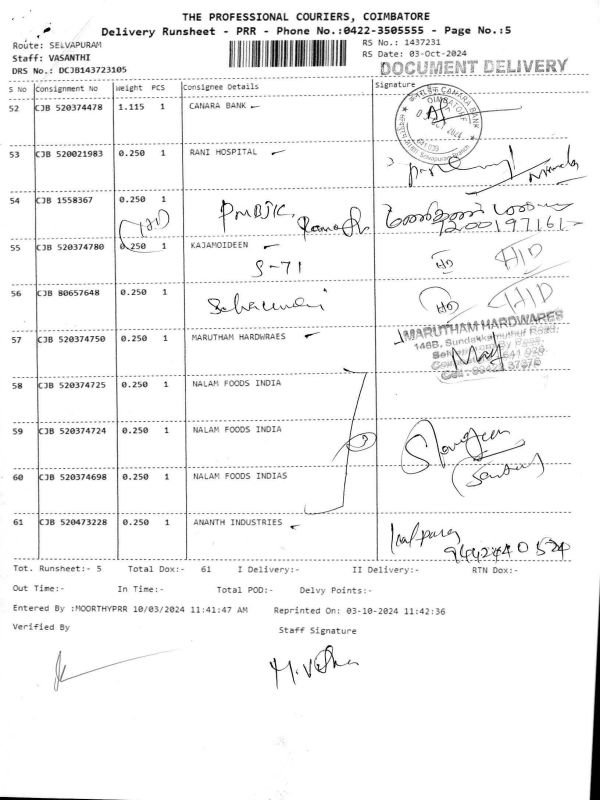 THE PROFESSIONAL COURIERS, COIMBATORE
Delivery Runsheet - PRR - Phone No.:0422-3505555 - Page No.:5
Route: SELVAPURAM
RS No.: 1437231
Staff: VASANTHI
RS Date: 03-Oct-2024
DRS No.: DCJB143723105
DOCUMENT DELIVERY
S No Consignment No Weight PCS Consignee Details Signature
52 CJB 520374478 1.115 1 CANARA BANK
CANARA BANK
53 CJB 520021983 0.250 1 RANI HOSPITAL
54 CJB 1558367 0.250 1 PMBJK
9200197161
55 CJB 520374780 0.250 1 KAJAMOIDEEN
S-71
H/D
56 CJB 80657648 0.250 1
H/D
57 CJB 520374750 0.250 1 MARUTHAM HARDWRAES
MARUTHAM HARDWARES
58 CJB 520374725 0.250 1 NALAM FOODS INDIA
59 CJB 520374724 0.250 1 NALAM FOODS INDIA
60 CJB 520374698 0.250 1 NALAM FOODS INDIAS
61 CJB 520473228 0.250 1 ANANTH INDUSTRIES
9442440524
Tot. Runsheet:- 5 Total Dox:- 61 I Delivery:- II Delivery:- RTN Dox:-
Out Time:- In Time:- Total POD:- Delvy Points:-
Entered By :MOORTHYPRR 10/03/2024 11:41:47 AM Reprinted On: 03-10-2024 11:42:36
Verified By Staff Signature